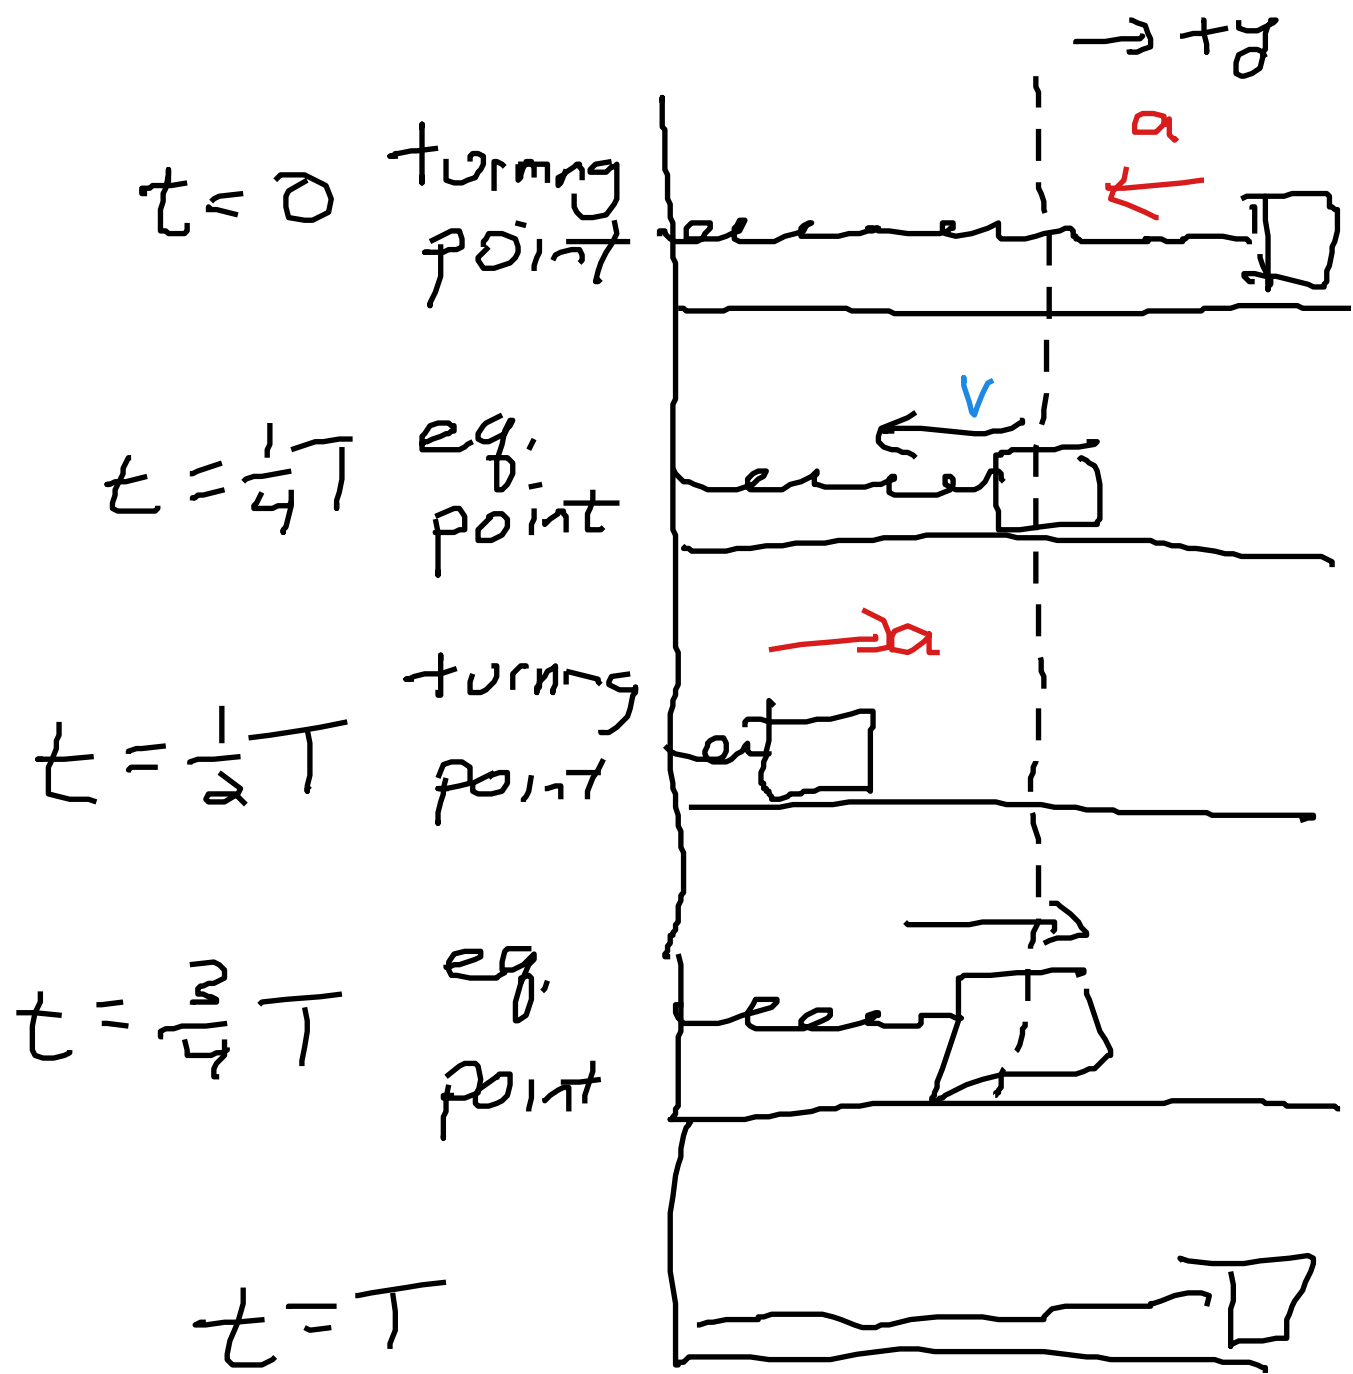 → +y
a
t = 0 turning point
v
t = 1/4 T eq. point
a
t = 1/2 T turning point
t = 3/4 T eq. point
t = T